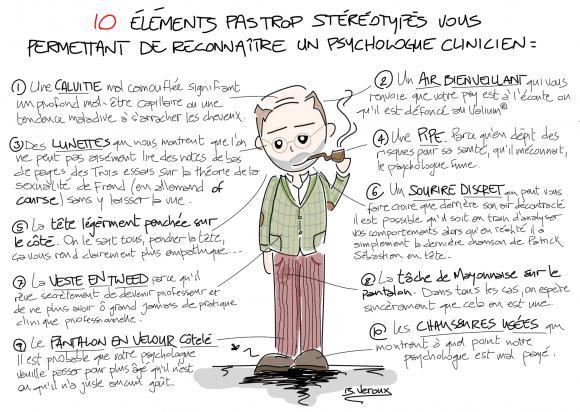 10 ÉLÉMENTS PAS TROP STÉRÉOTYPÉS VOUS
PERMETTANT DE RECONNAÎTRE UN PSYCHOLOGUE CLINICIEN :
① Une CALVITIE mal camouflée signifiant
un profond mal-être capillaire ou une
tendance maladive à s'arracher les cheveux.
② Un AIR BIENVEILLANT qui vous
renvoie que votre psy est à l'écoute ou
qu'il est défoncé au Valium®
③ Des LUNETTES qui nous montrent que l'on
ne peut pas aisément lire des notes de bas
de pages des Trois essais sur la théorie de la
sexualité de Freud (en allemand of
course) sans y laisser la vue.
④ Une PIPE. Parce qu'en dépit des
risques pour sa santé, qu'il méconnait,
le psychologue fume.
⑤ La tête légèrment penchée sur
le côté. On le sait tous, pencher la tête,
ça vous rend clairement plus empathique...
⑥ Un SOURIRE DISCRET qui peut vous
faire croire que derrière son air décontracté
il est possible qu'il soit en train d'analyser
vos comportements alors qu'en réalité il a
simplement la dernière chanson de Patrick
Sébastien en tête.
⑦ La VESTE EN TWEED parce qu'il
rêve secrètement de devenir professeur et
de ne plus avoir ô grand jamais de pratique
clinique professionnelle.
⑧ La tâche de Mayonnaise sur le
pantalon. Dans tous les cas, on espère
sincèrement que cela en est une.
⑨ Le PANTALON EN VELOUR CÔTELÉ
Il est probable que votre psychologue
veuille passer pour plus âgé qu'il n'est
ou qu'il n'a juste aucun goût.
⑩ Les CHAUSSURES USÉES qui
montrent à quel point notre
psychologue est mal payé.
B. Veroux